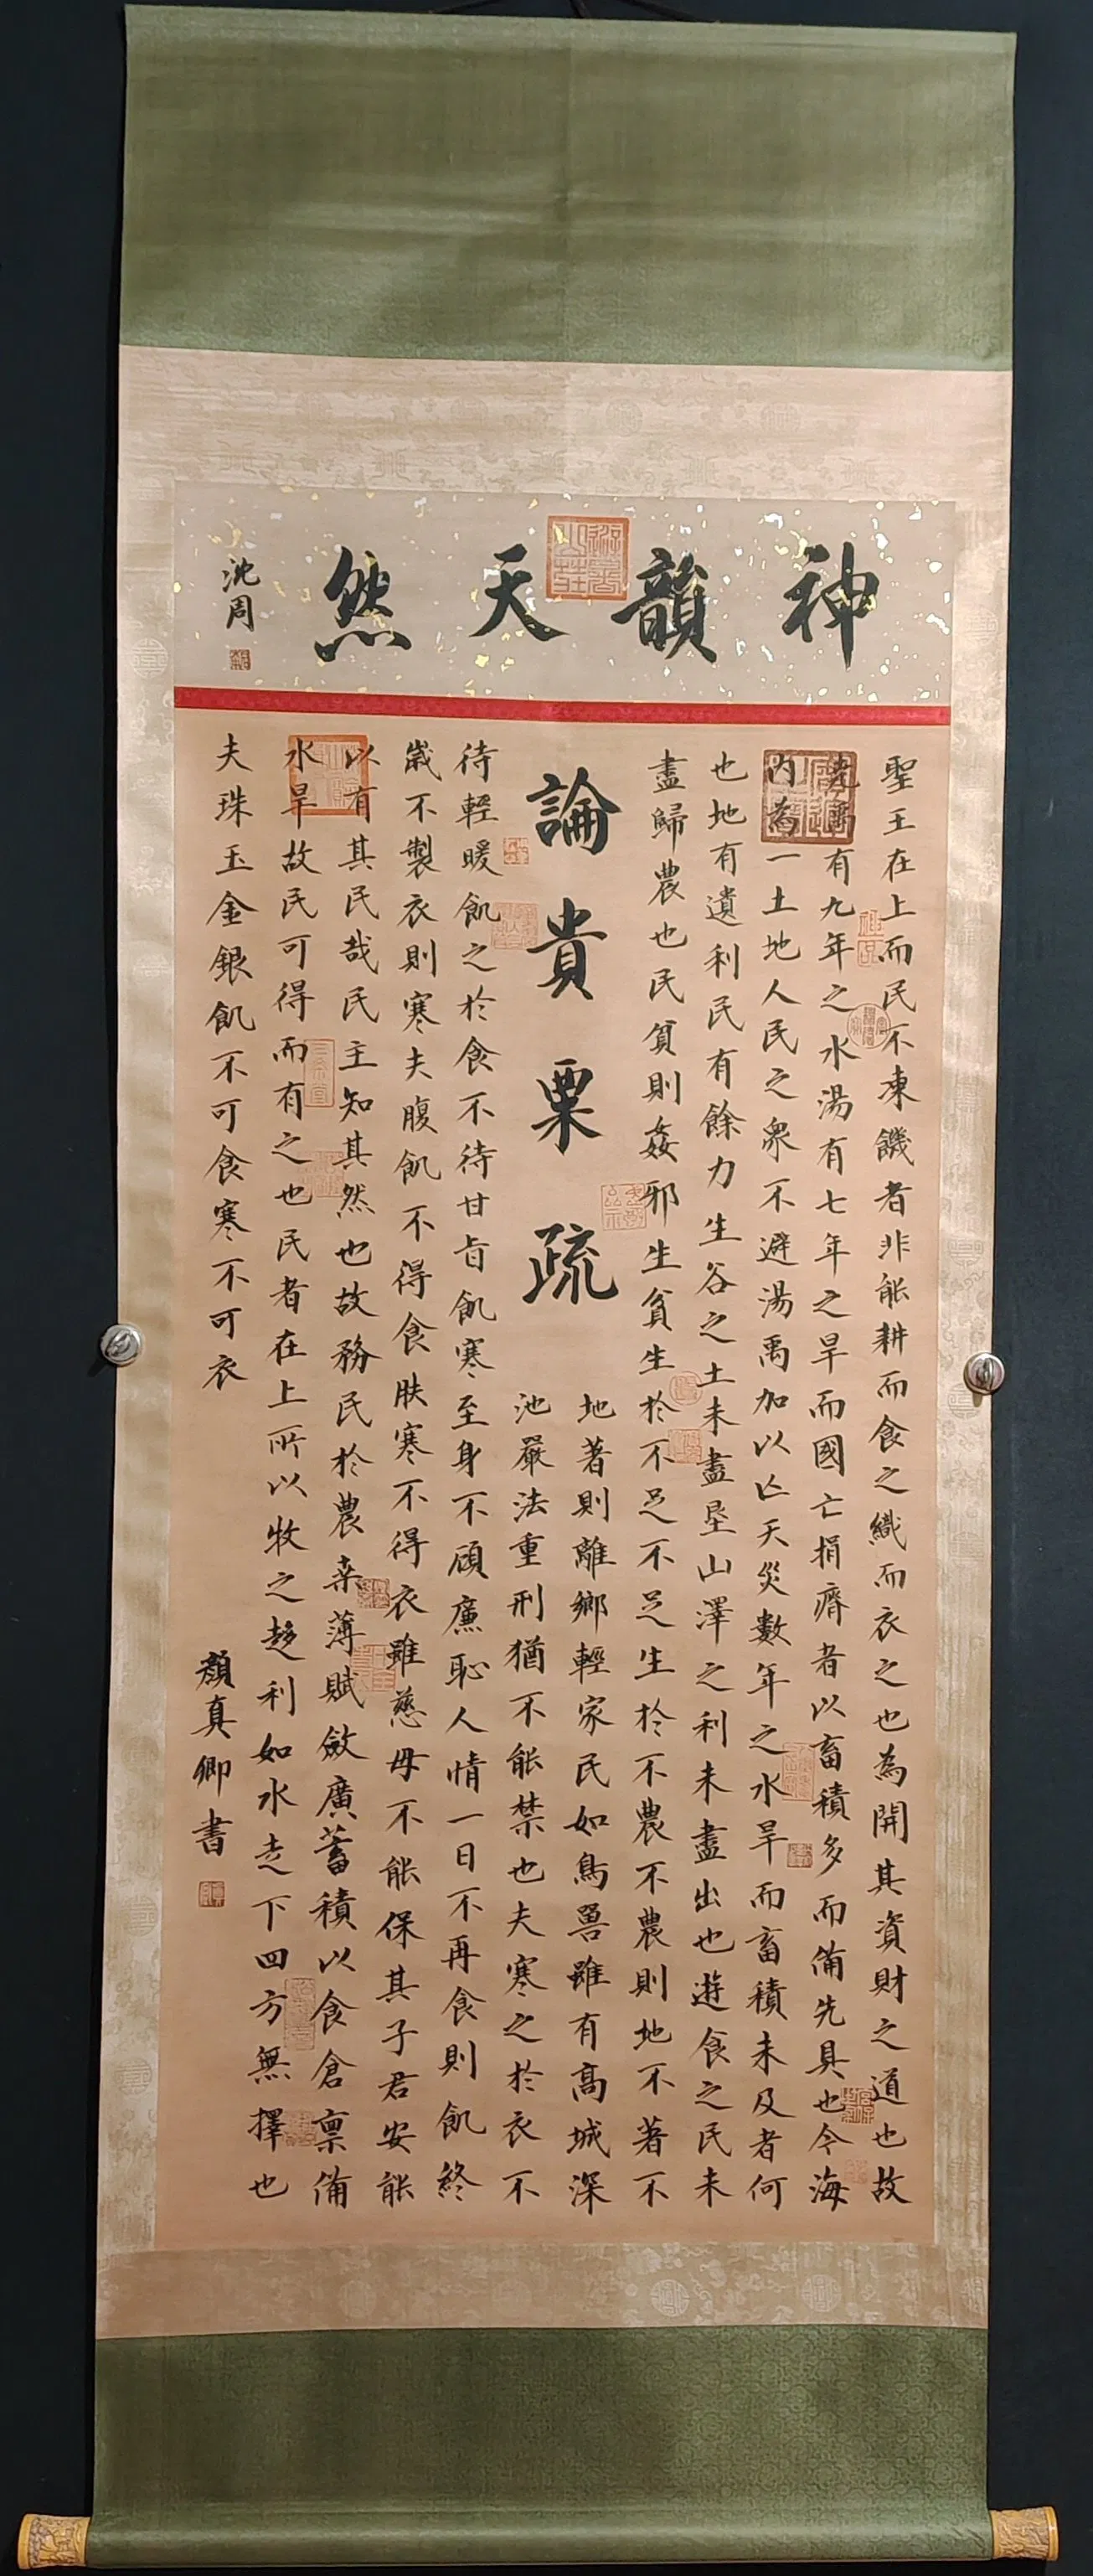 神韻天然
沈周
聖王在上而民不凍饑者非能耕而食之織而衣之也為開其資財之道也故
堯禹有九年之水湯有七年之旱而國亡捐瘠者以畜積多而備先具也今海
內為一土地人民之衆不避湯禹加以亡天災數年之水旱而畜積未及者何
也地有遺利民有餘力生谷之土未盡垦山澤之利未盡出也遊食之民未
盡歸農也民貧則姦邪生貧生於不足不足生於不農不農則地不著不
論貴栗疏
地著則離鄉輕家民如鳥獸雖有高城深
池嚴法重刑猶不能禁也夫寒之於衣不
待輕暖飢之於食不待甘旨飢寒至身不顧廉恥人情一日不再食則飢終
歲不製衣則寒夫腹飢不得食肤寒不得衣雖慈母不能保其子君安能
以有其民哉民主知其然也故務民於農桒薄賦斂廣蓄積以食倉禀備
水旱故民可得而有之也民者在上所以牧之趍利如水走下四方無擇也
夫珠玉金銀飢不可食寒不可衣
顏真卿書
三希堂